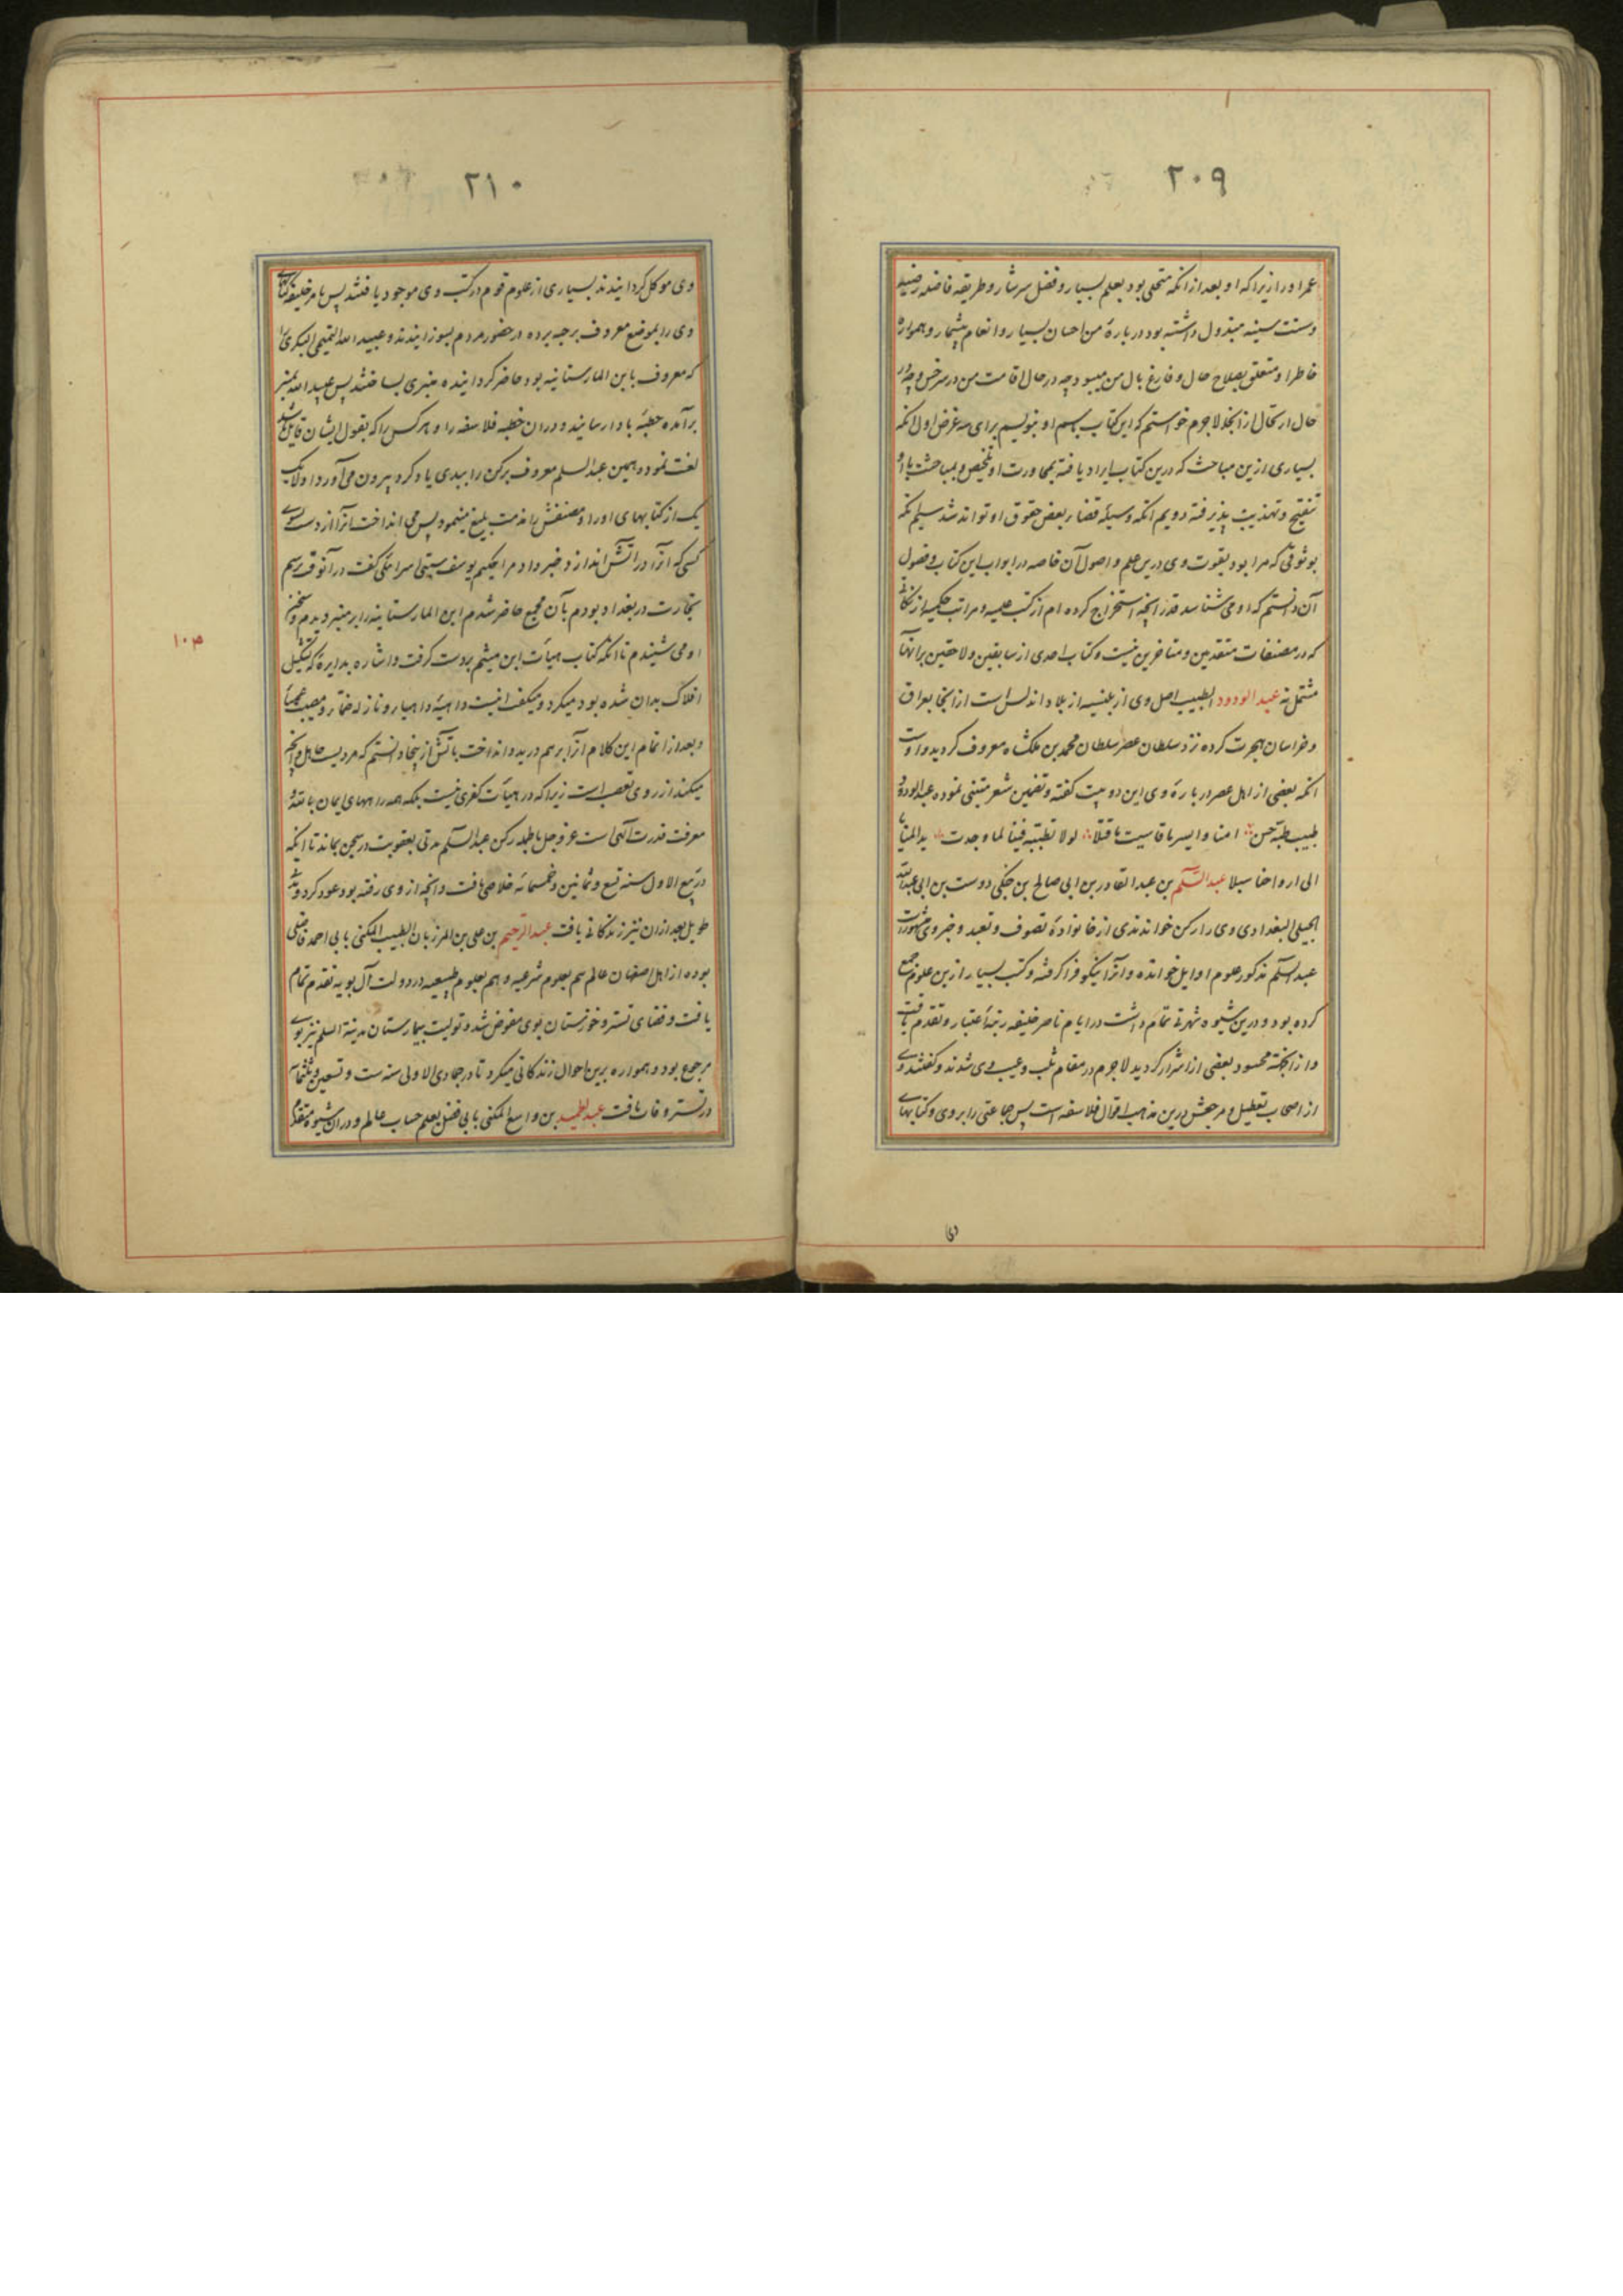 ۲۰۹
عمر او را زیرا که او بعد از آنکه متحلی بود بعلم بسیار و فضل سرشار و طریقه فاضله رضیه
و سنت سنیه مبذول داشته بود درباره من احسان بسیار و انعام بیشمار و همواره
خاطر او متعلق بصلاح حال و فارغ بال من میبود چه در حال اقامت من در سرخس و چه در
حال ارتحال از آنجا لاجرم خواستم که این کتاب باسم او بنویسم برای سه غرض اول آنکه
بسیاری ازین مباحث که درین کتاب ایراد یافته بمحاورت او تلخیص و بمباحثت با او
تنقیح و تهذیب پذیرفته دویم آنکه وسیله قضاء بعض حقوق او تواند شد سیم آنکه
بوثوقی که مرا بود بقوت وی درین علم و اصول آن خاصه در ابواب این کتاب و فصول
آن دانستم که او می شناسد قدر آنچه استخراج کرده ام از کتب علمیه و مراتب حکمیه از نکاتی
که در مصنفات متقدمین و متاخرین نیست و کتاب احدی از سابقین و لاحقین بر آنها
مشتمل نه عبد الودود الطبیب اصل وی از بلنسیه از بلاد اندلس است از آنجا بعراق
و خراسان هجرت کرده نزد سلطان عصر سلطان محمد بن ملکشاه معروف گردید و اوست
آنکه بعضی از اهل عصر درباره وی این دو بیت گفته و تضمین شعر متنبی نموده عبد الودود
طبیب طبه حسن امنا و ایسر ما قاسیت ما قتلا لولا تطببه فینا لما وجدت ید المنایا
الی ارواحنا سبلا عبد السلم بن عبد القادر بن ابی صالح بن جنکی دوست بن ابی عبد الله
الجیلی البغدادی وی را رکن خوانندی از خانواده تصوف و تعبد و خیر وی مشهورست
عبد السلم مذکور علوم اوایل خوانده و آنرا نیکو فرا گرفته و کتب بسیار ازین علوم جمع
کرده بود و درین شیوه شهرتی تمام داشت در ایام ناصر خلیفه رتبه اعتبار و تقدم یافت
و از آنجهة محسود بعضی از اشرار گردید لاجرم در مقام ثلب و عیب وی شدند و گفتند وی
از اصحاب تعطیل و مرجعش درین مذهب اقوال فلاسفه است پس جماعتی را بر وی و کتابهای
وی
۲۱۰
وی موکل گردانیدند بسیاری از علوم قوم در کتب وی موجود یافتند پس بامر خلیفه کتابهای
وی را بموضع معروف برحبه برده در حضور مردم بسوزانیدند و عبید الله التیمی البکری را
که معروف بابن المارستانیه بود حاضر گردانیده منبری بساختند پس عبید الله بمنبر
برآمده خطبه بادا رسانید و دران خطبه فلاسفه را و هر کس را که بقول ایشان قایل شد
لعنت نمود و همین عبد السلم معروف برکن را ببدی یاد کرد و بیرون می آورد اولا یک
یک از کتابهای او را و مصنفش را مذمت بلیغ مینمود پس می انداخت آنرا از دست سوی
کسی که آنرا در آتش اندازد خبر داد مرا حکیم یوسف سبتی اسرائلی گفت در آنوقت برسم
تجارت در بغداد بودم بآن مجمع حاضر شدم ابن المارستانیه را بر منبر دیدم و سخن
او می شنیدم تا آنکه کتاب هیأت ابن هیثم بدست گرفت و اشاره بدایره که تشکیل
۱۰۳
افلاک بدان شده بود میکرد و میگفت اینست داهیه داهیا و نازله صمآ و مصیب عمیآ
و بعد از اتمام این کلام آنرا بر هم درید و انداخت بآتش ازینجا دانستم که مردیست جاهل و آنچه
میکند از روی تعصب است زیرا که در هیأت کفری نیست بلکه همه راههای ایمان بالله و
معرفت قدرت الهی است عز و جل بالجمله رکن عبد السلم مدتی بعقوبت در سجن بماند تا آنکه
در ربیع الاول سنه تسع و ثمانین و خمسمائه خلاصی یافت و آنچه از وی رفته بود عود کرد و مدتی
طویل بعد ازان نیز زندگانی یافت عبد الرحیم بن علی بن المرزبان الطبیب المکنی بابی احمد فاضلی
بوده از اهل اصفهان عالم هم بعلوم شرعیه و هم بعلوم طبیعیه در دولت آل بویه تقدم تمام
یافت و قضای تستر و خوزستان بوی مفوض شد و تولیت بیمارستان مدینة السلم نیز بوی
مرجوع بود و همواره برین احوال زندگانی میکرد تا در جمادی الاولی سنه ست و تسعین و ثلثمائه
در تستر وفات یافت عبد الحمید بن واسع المکنی بابی فضل بعلم حساب عالم و دران شیوه متقدم